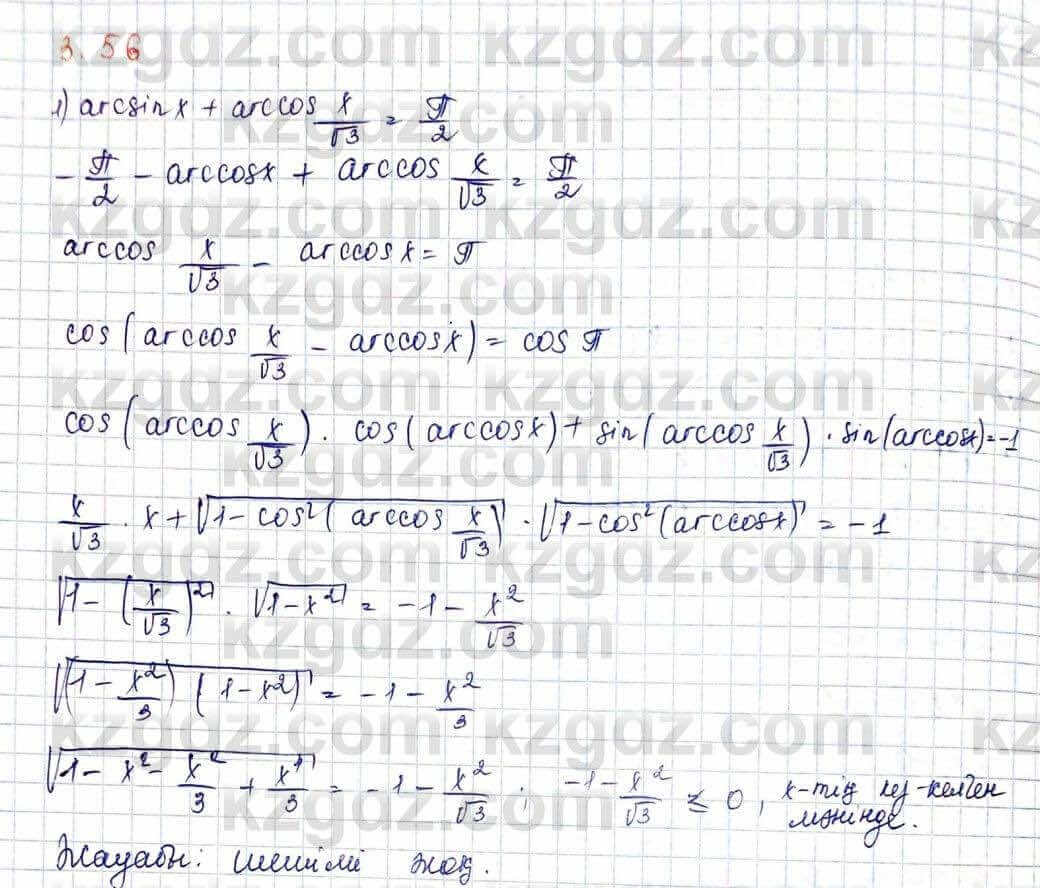 3.56
1) arcsin x + arccos x/√3 = π/2
- π/2 - arccos x + arccos x/√3 = π/2
arccos x/√3 - arccos x = π
cos(arccos x/√3 - arccos x) = cos π
cos(arccos x/√3) · cos(arccos x) + sin(arccos x/√3) · sin(arccos x) = -1
x/√3 · x + √(1 - cos²(arccos x/√3)) · √(1 - cos²(arccos x)) = -1
√(1 - (x/√3)²) · √(1 - x²) = -1 - x²/√3
√((1 - x²/3)(1 - x²)) = -1 - x²/3
√(1 - x² - x²/3 + x⁴/3) = -1 - x²/√3 ; -1 - x²/√3 ≤ 0, х-тің кез-келген мәнінде.
Жауабы: шешімі жоқ.
kzgdz.com